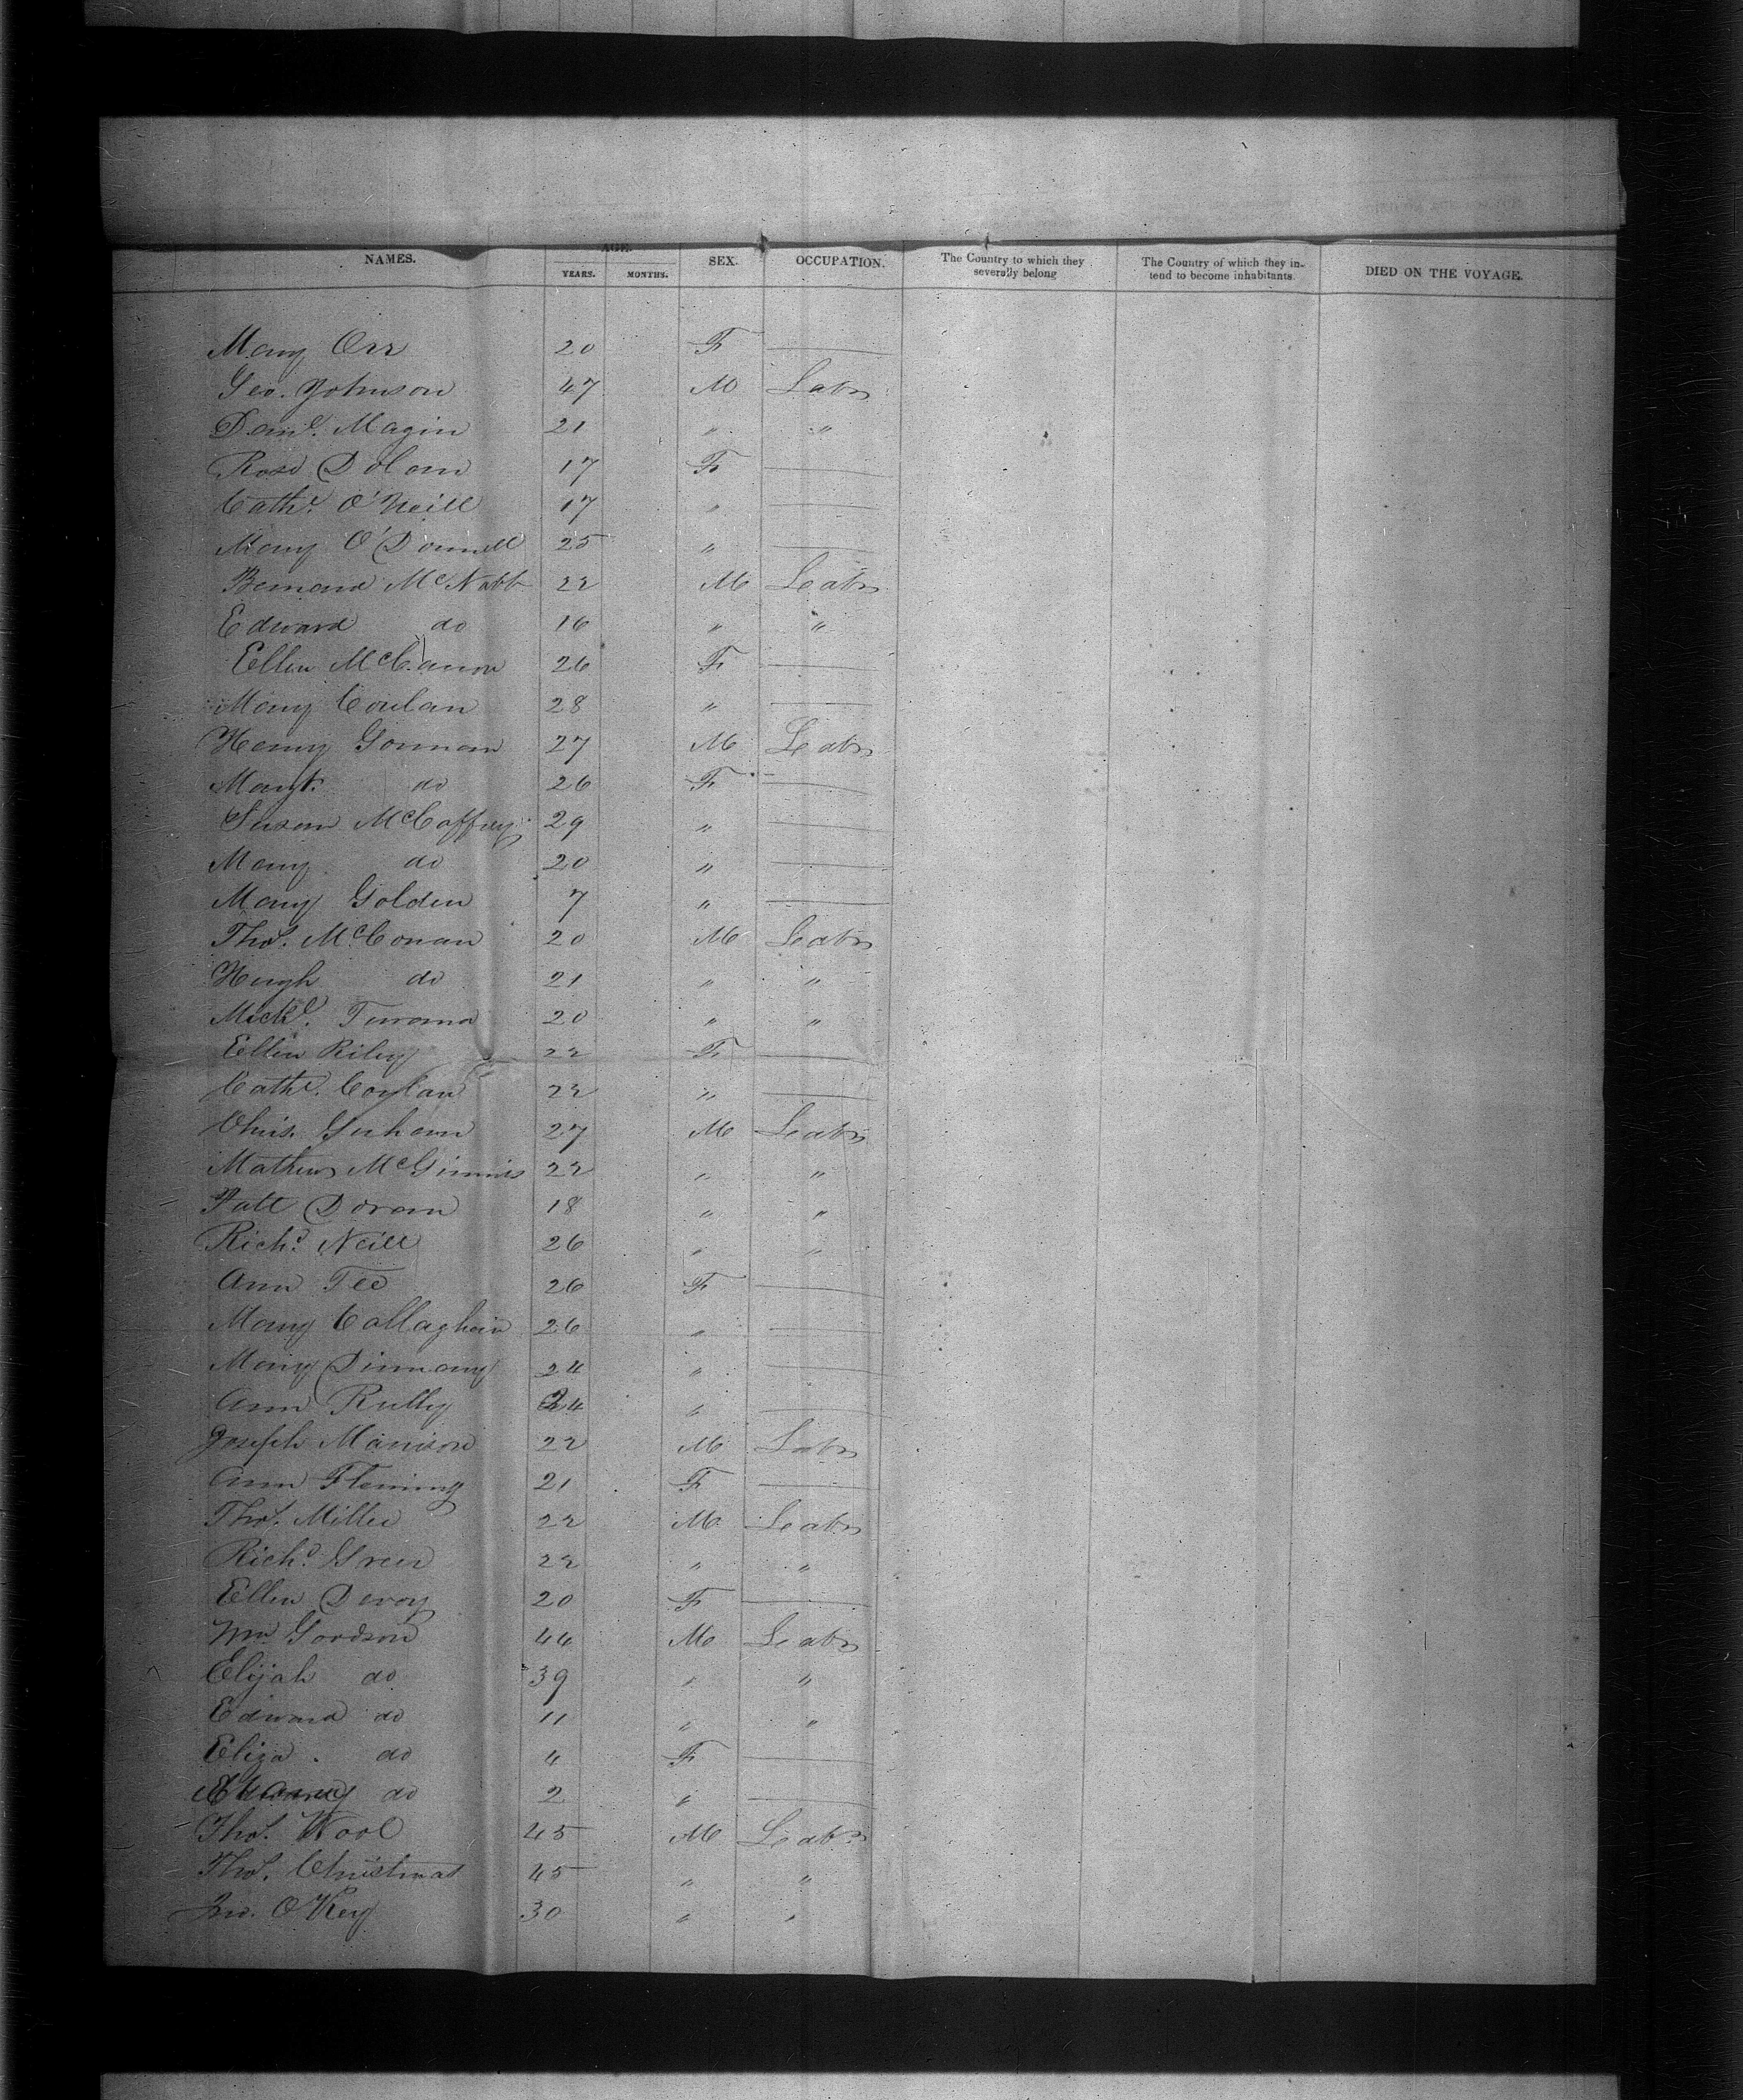 NAMES. AGE. YEARS. MONTHS. SEX. OCCUPATION. The Country to which they severally belong The Country of which they intend to become inhabitants. DIED ON THE VOYAGE.
Mary Orr 20 F
Geo. Johnson 47 M Labr
Danl. Magin 21 " "
Rose Dolan 17 F
Cathe. O'Neill 17 "
Mary O'Donnell 25 "
Bernard McNabb 22 M Labr
Edward do 16 " "
Ellen McCanon 26 F
Mary Coulan 28 "
Henry Gorman 27 M Labr
Margt. do 26 F
Susan McCaffrey 29 "
Mary do 20 "
Mary Golden 7 "
Thos. McConan 20 M Labr
Hugh do 21 " "
Michl. 20 " "
Ellen Riley 22 F
Cathe. Coylan 22 "
Chris. 27 M Labr
Mathew McGinnis 22 " "
Patt Doran 18 " "
Richd. Neill 26 " "
Ann Fee 26 F
Mary Callaghan 26 "
Mary 24 "
Ann Rully 24 "
Joseph Manison 22 M Labr
Ann Fleming 21 F
Thos. Miller 22 M Labr
Richd. Green 22 " "
Ellen Devoy 20 F
Wm Goodson 44 M Labr
Elijah do 39 " "
Edward do 11 " "
Eliza. do 4 F
do 2 "
Thos. Wool 45 M Labr
Thos. Christmas 45 " "
Jno. O'Key 30 " "